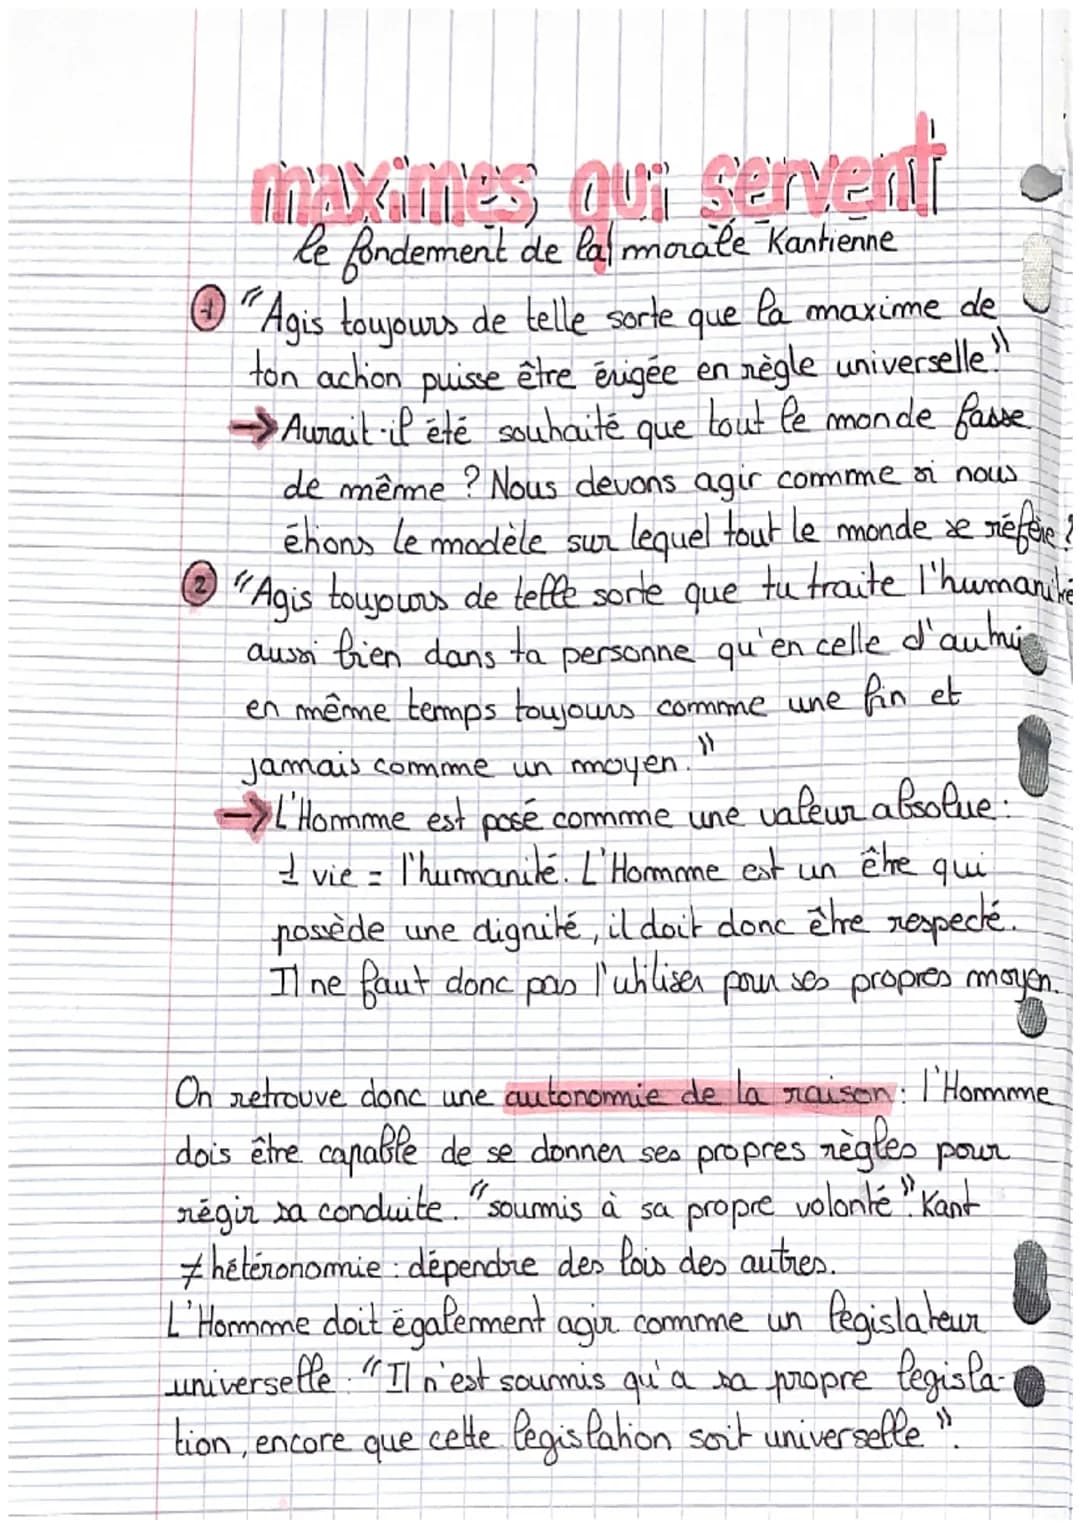 maximes qui servent
le fondement de la morale Kantienne
1 "Agis toujours de telle sorte que la maxime de
ton action puisse être érigée en règle universelle."
→ Aurait-il été souhaité que tout le monde fasse
de même ? Nous devons agir comme si nous
étions le modèle sur lequel tout le monde se réfère ?
2 "Agis toujours de telle sorte que tu traite l'humanité
aussi bien dans ta personne qu'en celle d'autrui
en même temps toujours comme une fin et
jamais comme un moyen."
→ L'Homme est posé comme une valeur absolue :
1 vie = l'humanité. L'Homme est un être qui
possède une dignité, il doit donc être respecté.
Il ne faut donc pas l'utiliser pour ses propres moyen.
On retrouve donc une autonomie de la raison : l'Homme
dois être capable de se donner ses propres règles pour
régir sa conduite. "soumis à sa propre volonté". Kant
≠ hétéronomie : dépendre des lois des autres.
L'Homme doit également agir comme un législateur
universelle : "Il n'est soumis qu'a sa propre législa-
tion, encore que cette législation soit universelle".